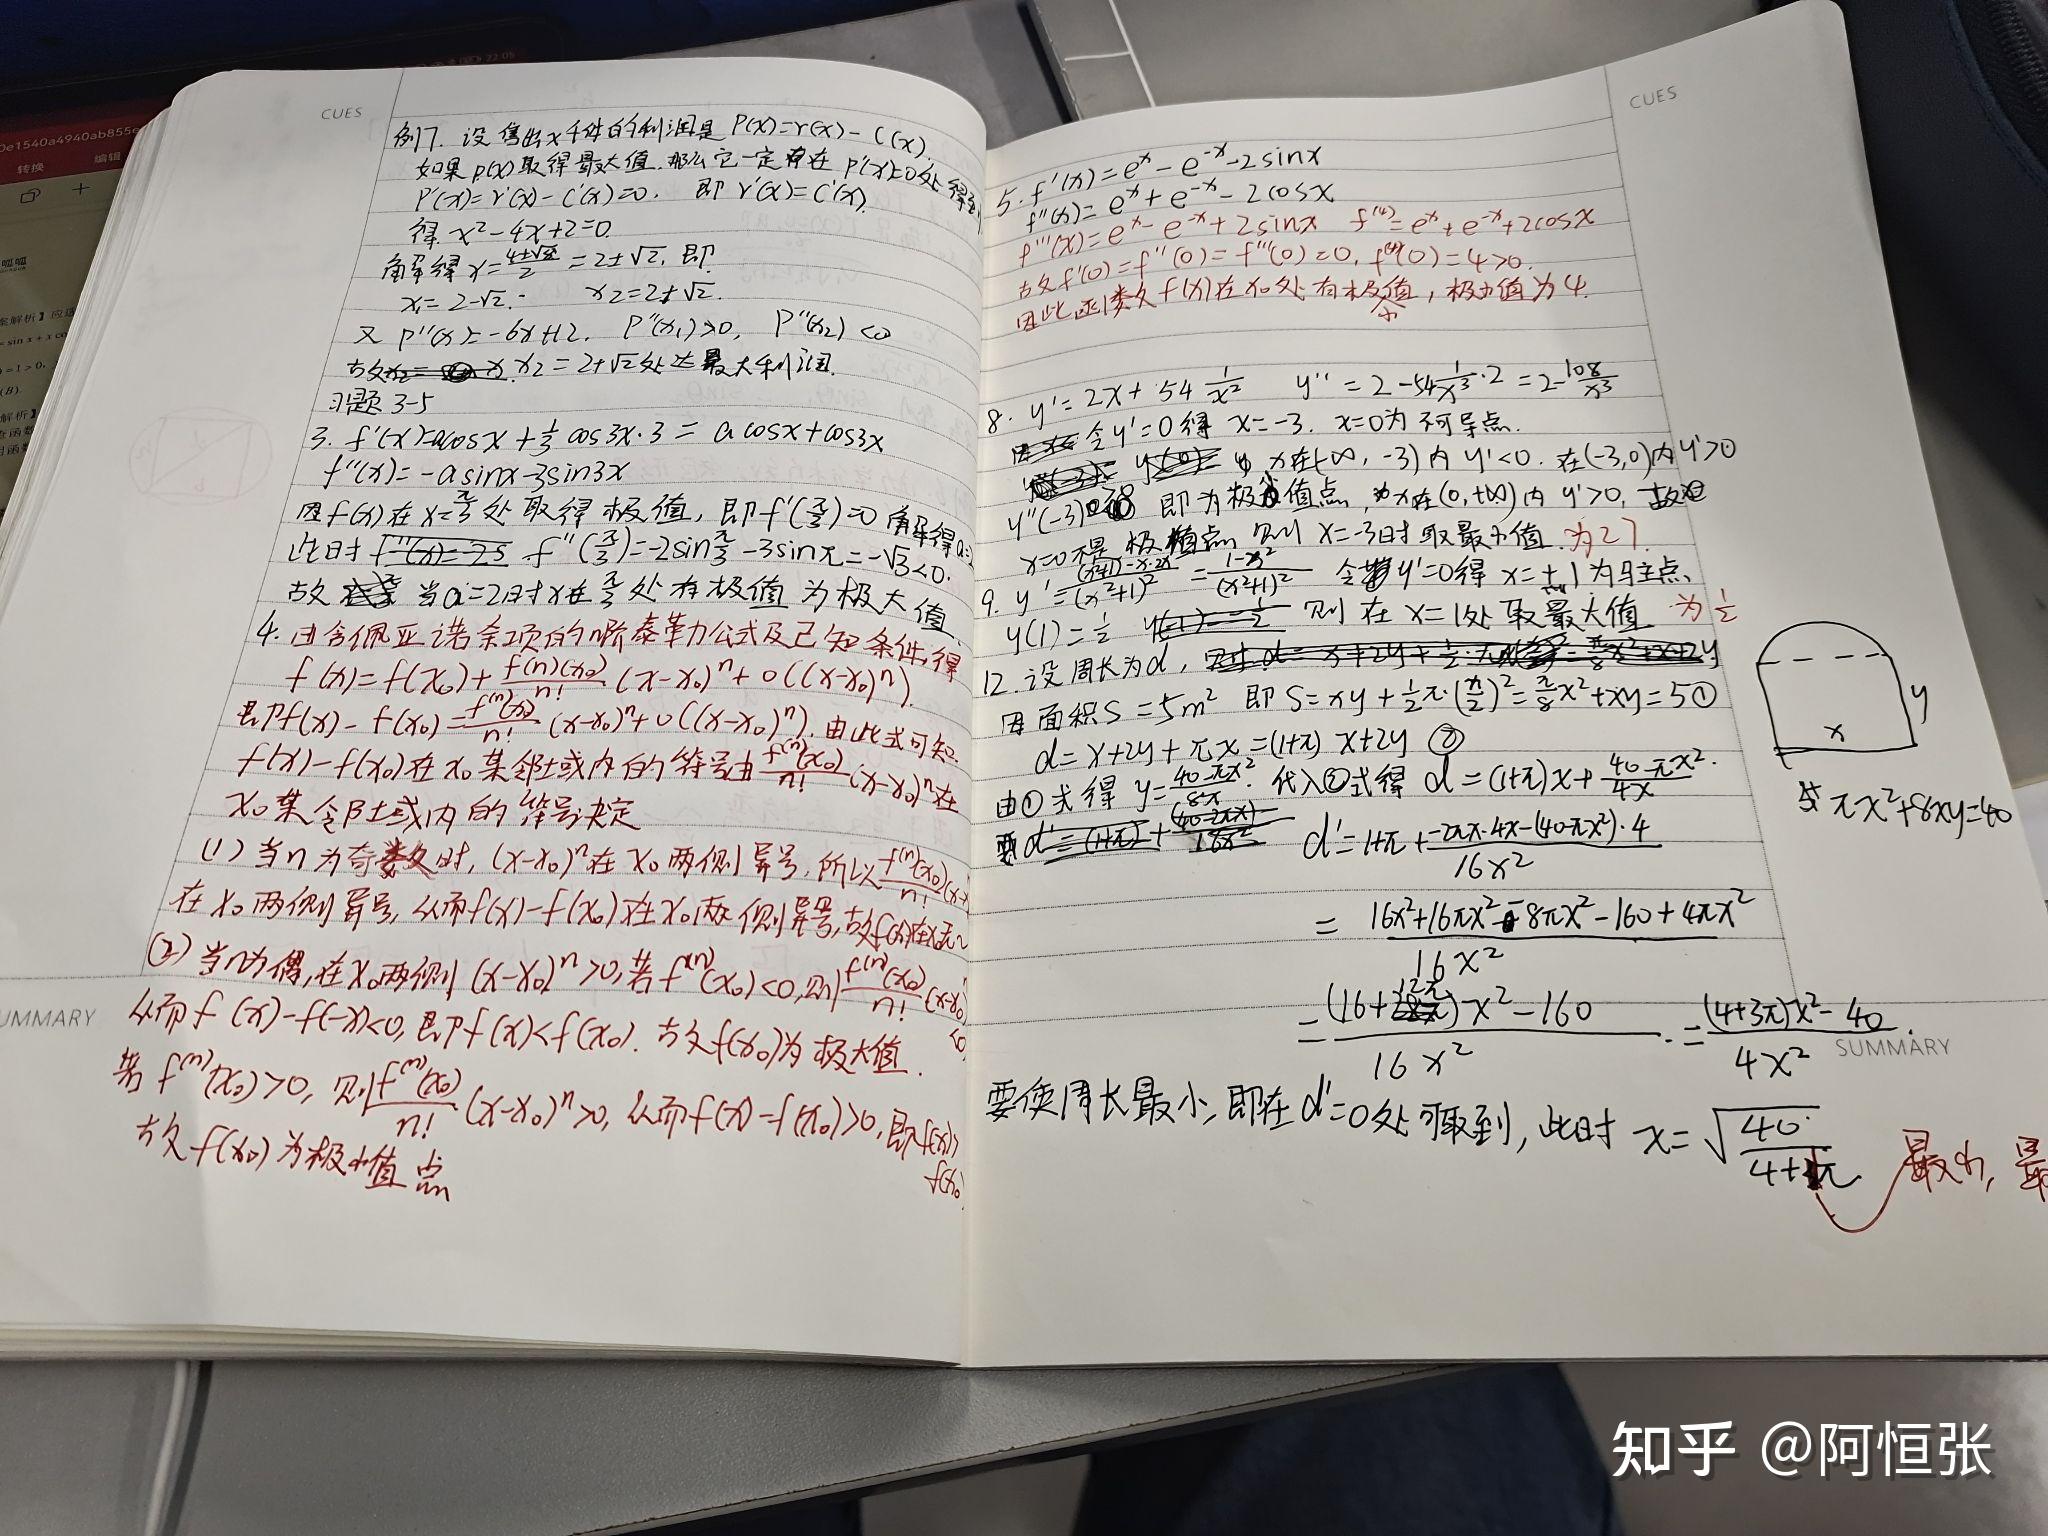 CUES
例7. 设售出x千件的利润是 P(x)=r(x)-C(x).
如果P(x)取得最大值.那么它一定在 P'(x)=0处得到
P'(x)=r'(x)-C'(x)=0. 即 r'(x)=C'(x).
得 x²-4x+2=0.
解得 x= =2±√2, 即
x₁=2-√2. x₂=2+√2.
又 P''(x)=-6x+12, P''(x₁)>0, P''(x₂)<0
故 x₂=2+√2处达最大利润.
习题3-5
3. f'(x)=acosx+1/3 cos3x·3=acosx+cos3x
f''(x)=-asinx-3sin3x
因f(x)在x=π/3处取得极值, 即f'(π/3)=0 解得a=2
此时 f''(π/3)=-2sinπ/3-3sinπ=-√3<0.
故 当a=2时x在π/3处有极值为极大值.
4. 由含佩亚诺余项的n阶泰勒公式及已知条件,得
f(x)=f(x₀)+f⁽ⁿ⁾(x₀)/n! (x-x₀)ⁿ+o((x-x₀)ⁿ).
即f(x)-f(x₀)=f⁽ⁿ⁾(x₀)/n! (x-x₀)ⁿ+o((x-x₀)ⁿ). 由此式可知
f(x)-f(x₀)在x₀某邻域内的符号由f⁽ⁿ⁾(x₀)/n! (x-x₀)ⁿ在
x₀某邻域内的符号决定
(1) 当n为奇数时, (x-x₀)ⁿ在x₀两侧异号, 所以f⁽ⁿ⁾(x₀)/n!
在x₀两侧异号, 从而f(x)-f(x₀)在x₀两侧异号, 故f(x)在x₀无
(2) 当n为偶, 在x₀两侧(x-x₀)ⁿ>0, 若f⁽ⁿ⁾(x₀)<0, 则f⁽ⁿ⁾(x₀)/n! (x-x₀)ⁿ<0,
从而f(x)-f(-x)<0, 即f(x)<f(x₀). 故f(x₀)为极大值.
若f⁽ⁿ⁾(x₀)>0, 则f⁽ⁿ⁾(x₀)/n! (x-x₀)ⁿ>0, 从而f(x)-f(x₀)>0, 即f(x)>f(x₀)
故f(x₀)为极小值点
SUMMARY
CUES
5. f'(x)=eˣ-e⁻ˣ-2sinx
f''(x)=eˣ+e⁻ˣ-2cosx
f'''(x)=eˣ-e⁻ˣ+2sinx f⁽⁴⁾=eˣ+e⁻ˣ+2cosx
故f'(0)=f''(0)=f'''(0)=0, f⁽⁴⁾(0)=4>0.
因此函数f(x)在x₀处有极小值, 极小值为4.
8. y'=2x+54 1/x² y''=2-54 1/x³·2=2-108/x³
令y'=0得 x=-3. x=0为不可导点.
x在(-∞, -3)内y'<0. 在(-3,0)内y'>0
y''(-3)>0 即为极小值点, x在(0,+∞)内y'>0,
x=0不是极值点 则x=-3时取最小值.为27.
9. y'=((x²+1)-x·2x)/(x²+1)²=(1-x²)/(x²+1)² 令y'=0得 x=±1为驻点,
y(1)=1/2 则在x=1处取最大值 为1/2
12. 设周长为d,
因面积S=5m² 即S=xy+1/2π·(x/2)²=π/8x²+xy=5①
d=x+2y+πx=(1+π)x+2y ②
由①式得 y=(40-πx²)/8x. 代入②式得 d=(1+π)x+(40-πx²)/4x.
d'=1+π+(-2πx·4x-(40-πx²)·4)/16x²
=(16x²+16πx²-8πx²-160+4πx²)/16x²
=((16+12π)x²-160)/16x²=((4+3π)x²-40)/4x².
要使周长最小, 即在d'=0处可取到, 此时 x=
最小, 最
x
y
πx²+8xy=40
SUMMARY
转换
编辑
22:05
知乎 @阿恒张